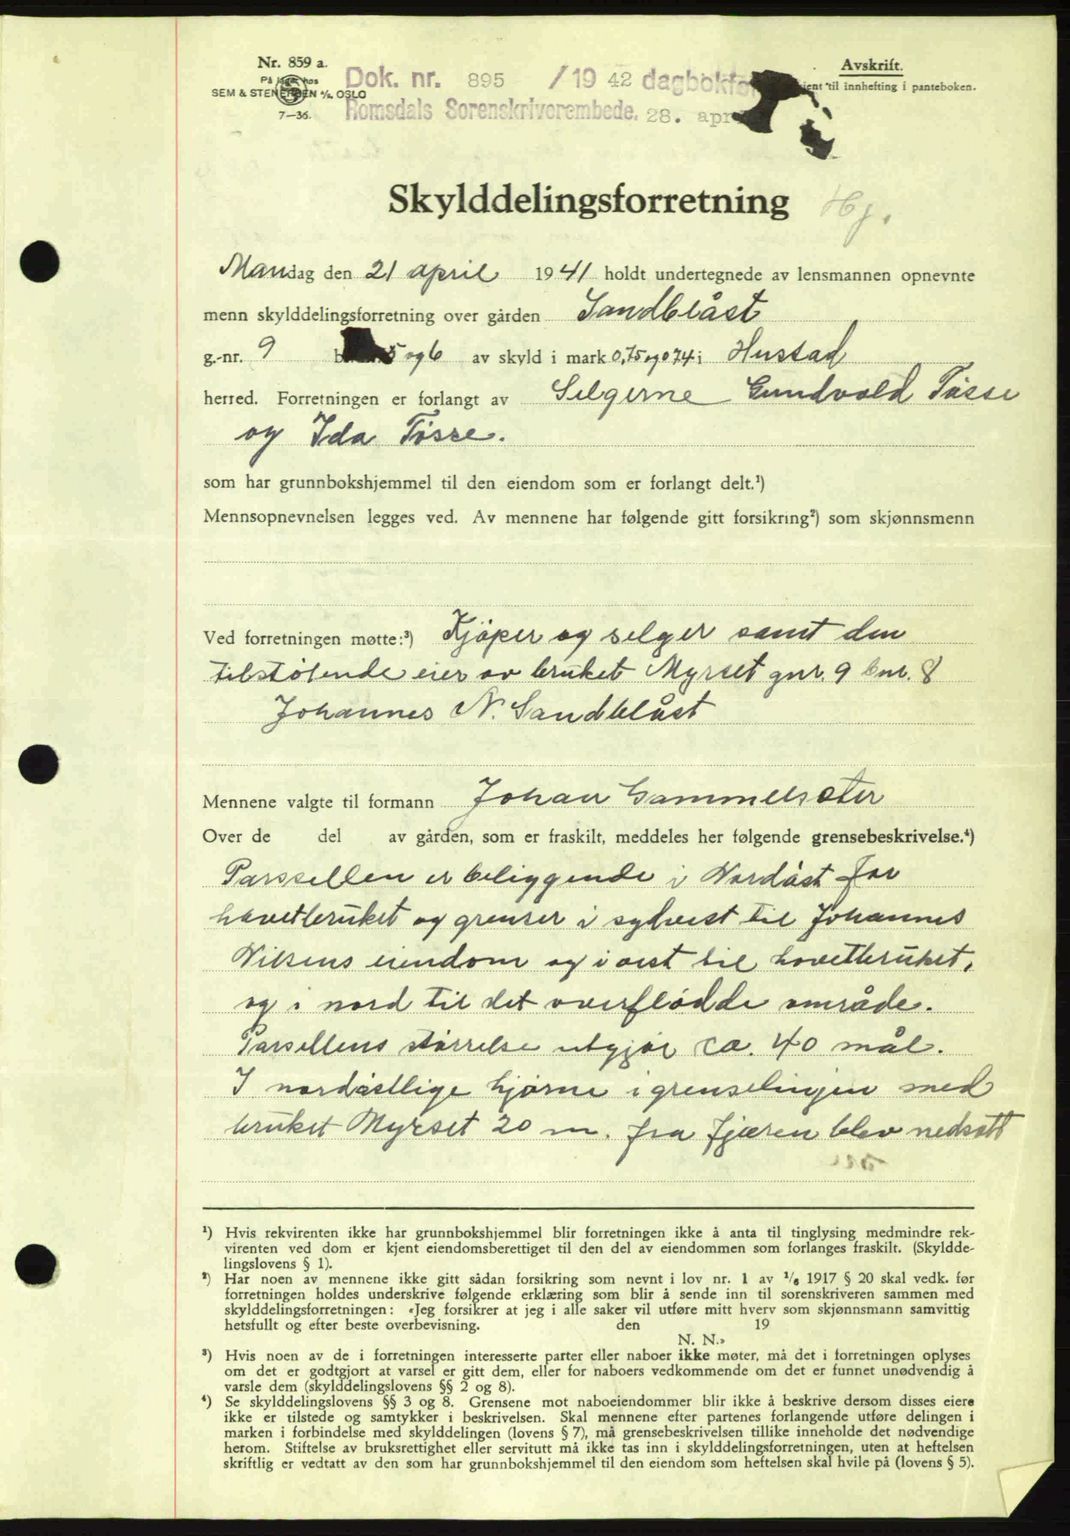 Nr. 859 a.
På lager hos
SEM & STENERSEN A/S, OSLO
7—36.
Dok. nr. 895 /19 42 dagbokf
Romsdals Sorenskriverembede. 28. apr
Avskrift.
til innhefting i panteboken.
Skylddelingsforretning Hj.
Mandag den 21 april 1941 holdt undertegnede av lensmannen opnevnte
menn skylddelingsforretning over gården Sandblåst
g.-nr. 9 b 5 og 6 av skyld i mark 0,75 og 0,74 i Hustad
herred. Forretningen er forlangt av Selgerne Gundvald Tøsse
og Ida Tøsse.
som har grunnbokshjemmel til den eiendom som er forlangt delt.¹)
Mennsopnevnelsen legges ved. Av mennene har følgende gitt forsikring²) som skjønnsmenn
Ved forretningen møtte:³) Kjøper og selger samt den
tilstøtende eier av bruket Myrset gnr. 9 bnr. 8
Johannes N. Sandblåst
Mennene valgte til formann Johan Gammelsæter
Over de del av gården, som er fraskilt, meddeles her følgende grensebeskrivelse.⁴)
Parsellen er beliggende i Nordøst for
hovetbruket og grenser i sydvest til Johannes
Nilsens eiendom og i vest til hovetbruket,
og i nord til det overflødde område.
Parsellens størrelse utgjør ca. 40 mål.
I nordøstlige hjørne i grenselinjen med
bruket Myrset 20 m. fra fjæren blev nedsatt
¹) Hvis rekvirenten ikke har grunnbokshjemmel blir forretningen ikke å anta til tinglysing medmindre rek-
virenten ved dom er kjent eiendomsberettiget til den del av eiendommen som forlanges fraskilt. (Skyldde-
lingslovens § 1).
²) Har noen av mennene ikke gitt sådan forsikring som nevnt i lov nr. 1 av ¹/₆ 1917 § 20 skal vedk. før
forretningen holdes underskrive følgende erklæring som blir å sende inn til sorenskriveren sammen med
skylddelingsforretningen: «Jeg forsikrer at jeg i alle saker vil utføre mitt hverv som skjønnsmann samvittig
hetsfullt og efter beste overbevisning. den 19
N. N.»
³) Hvis noen av de i forretningen interesserte parter eller naboer ikke møter, må det i forretningen oplyses
om det er godtgjort at varsel er gitt dem, eller for naboers vedkommende om det er funnet unødvendig å
varsle dem (skylddelingslovens §§ 2 og 8).
⁴) Se skylddelingslovens §§ 3 og 8. Grensene mot naboeiendommer blir ikke å beskrive dersom disses eiere
ikke er tilstede og samtykker i beskrivelsen. Skal mennene efter partenes forlangende utføre delingen i
marken i forbindelse med skylddelingen (lovens § 7), må grensebeskrivelsen tillike inneholde det nødvendige
herom. Stiftelse av bruksrettighet eller servitutt må ikke tas inn i skylddelingsforretningen, uten at heftelsen
skriftlig er vedtatt av den som har grunnbokshjemmel til den eiendom som heftelsen skal hvile på (lovens § 5).